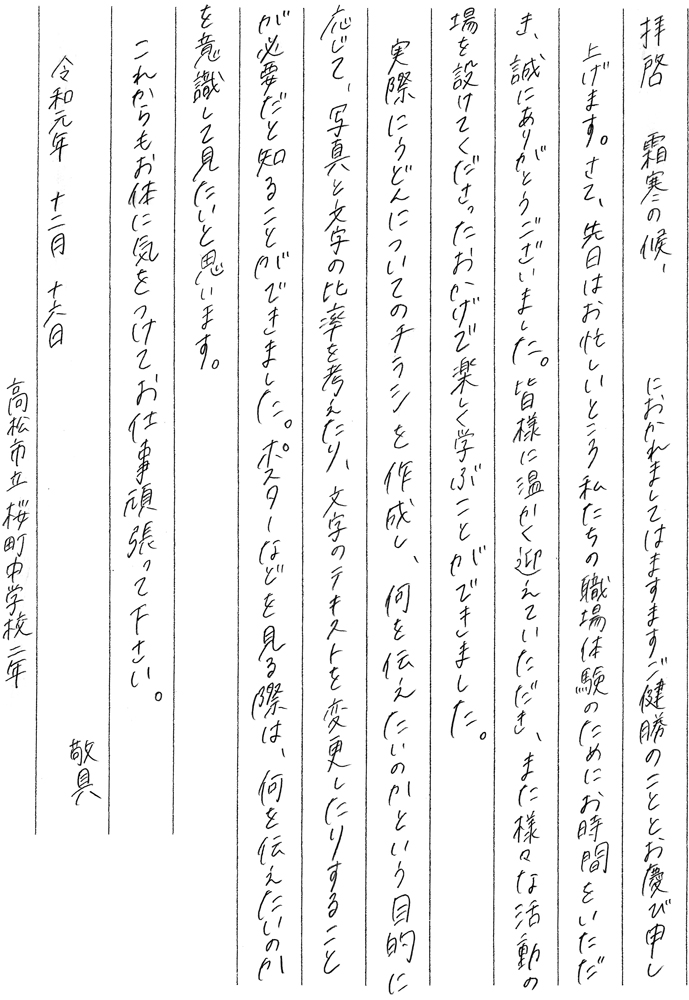 拝啓　霜寒の候、　　　におかれましてはますますご健勝のこととお慶び申し
上げます。さて、先日はお忙しいところ私たちの職場体験のためにお時間をいただ
き、誠にありがとうございました。皆様に温かく迎えていただき、また様々な活動の
場を設けてくださったおかげで楽しく学ぶことができました。
実際にうどんについてのチラシを作成し、何を伝えたいのかという目的に
応じて、写真と文字の比率を考えたり、文字のテキストを変更したりすること
が必要だと知ることができました。ポスターなどを見る際は、何を伝えたいのか
を意識して見たいと思います。
これからもお体に気をつけてお仕事頑張って下さい。
敬具
令和元年　十二月　十六日
高松市立桜町中学校二年